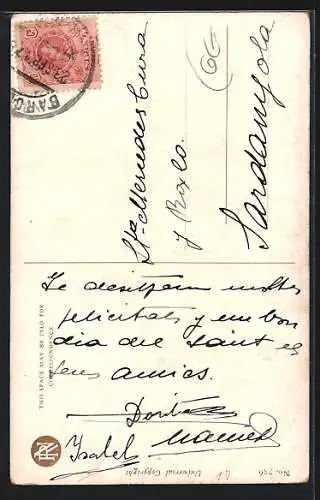 BARC
6€
Sta Mercedes Cura
y Roxlo.
Sardanyola
Te desitjem moltes
felicitats y un bon
dia del Sant els
teus amics.
Isabel
THIS SPACE MAY BE USED FOR
CORRESPONDENCE
Universal Copyright
No. 756